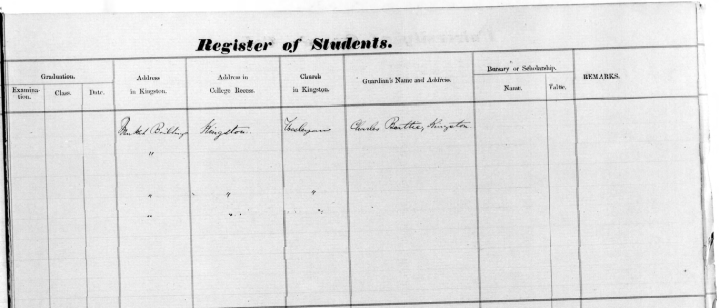 Register of Students.
Graduation.
Examina-
tion.
Class.
Date.
Address
in Kingston.
Address in
College Recess.
Church
in Kingston.
Guardian's Name and Address.
Bursary or Scholarship.
Name.
Value.
REMARKS.
Kingston. Wesleyan Charles Kingston
"
" " "
" " "